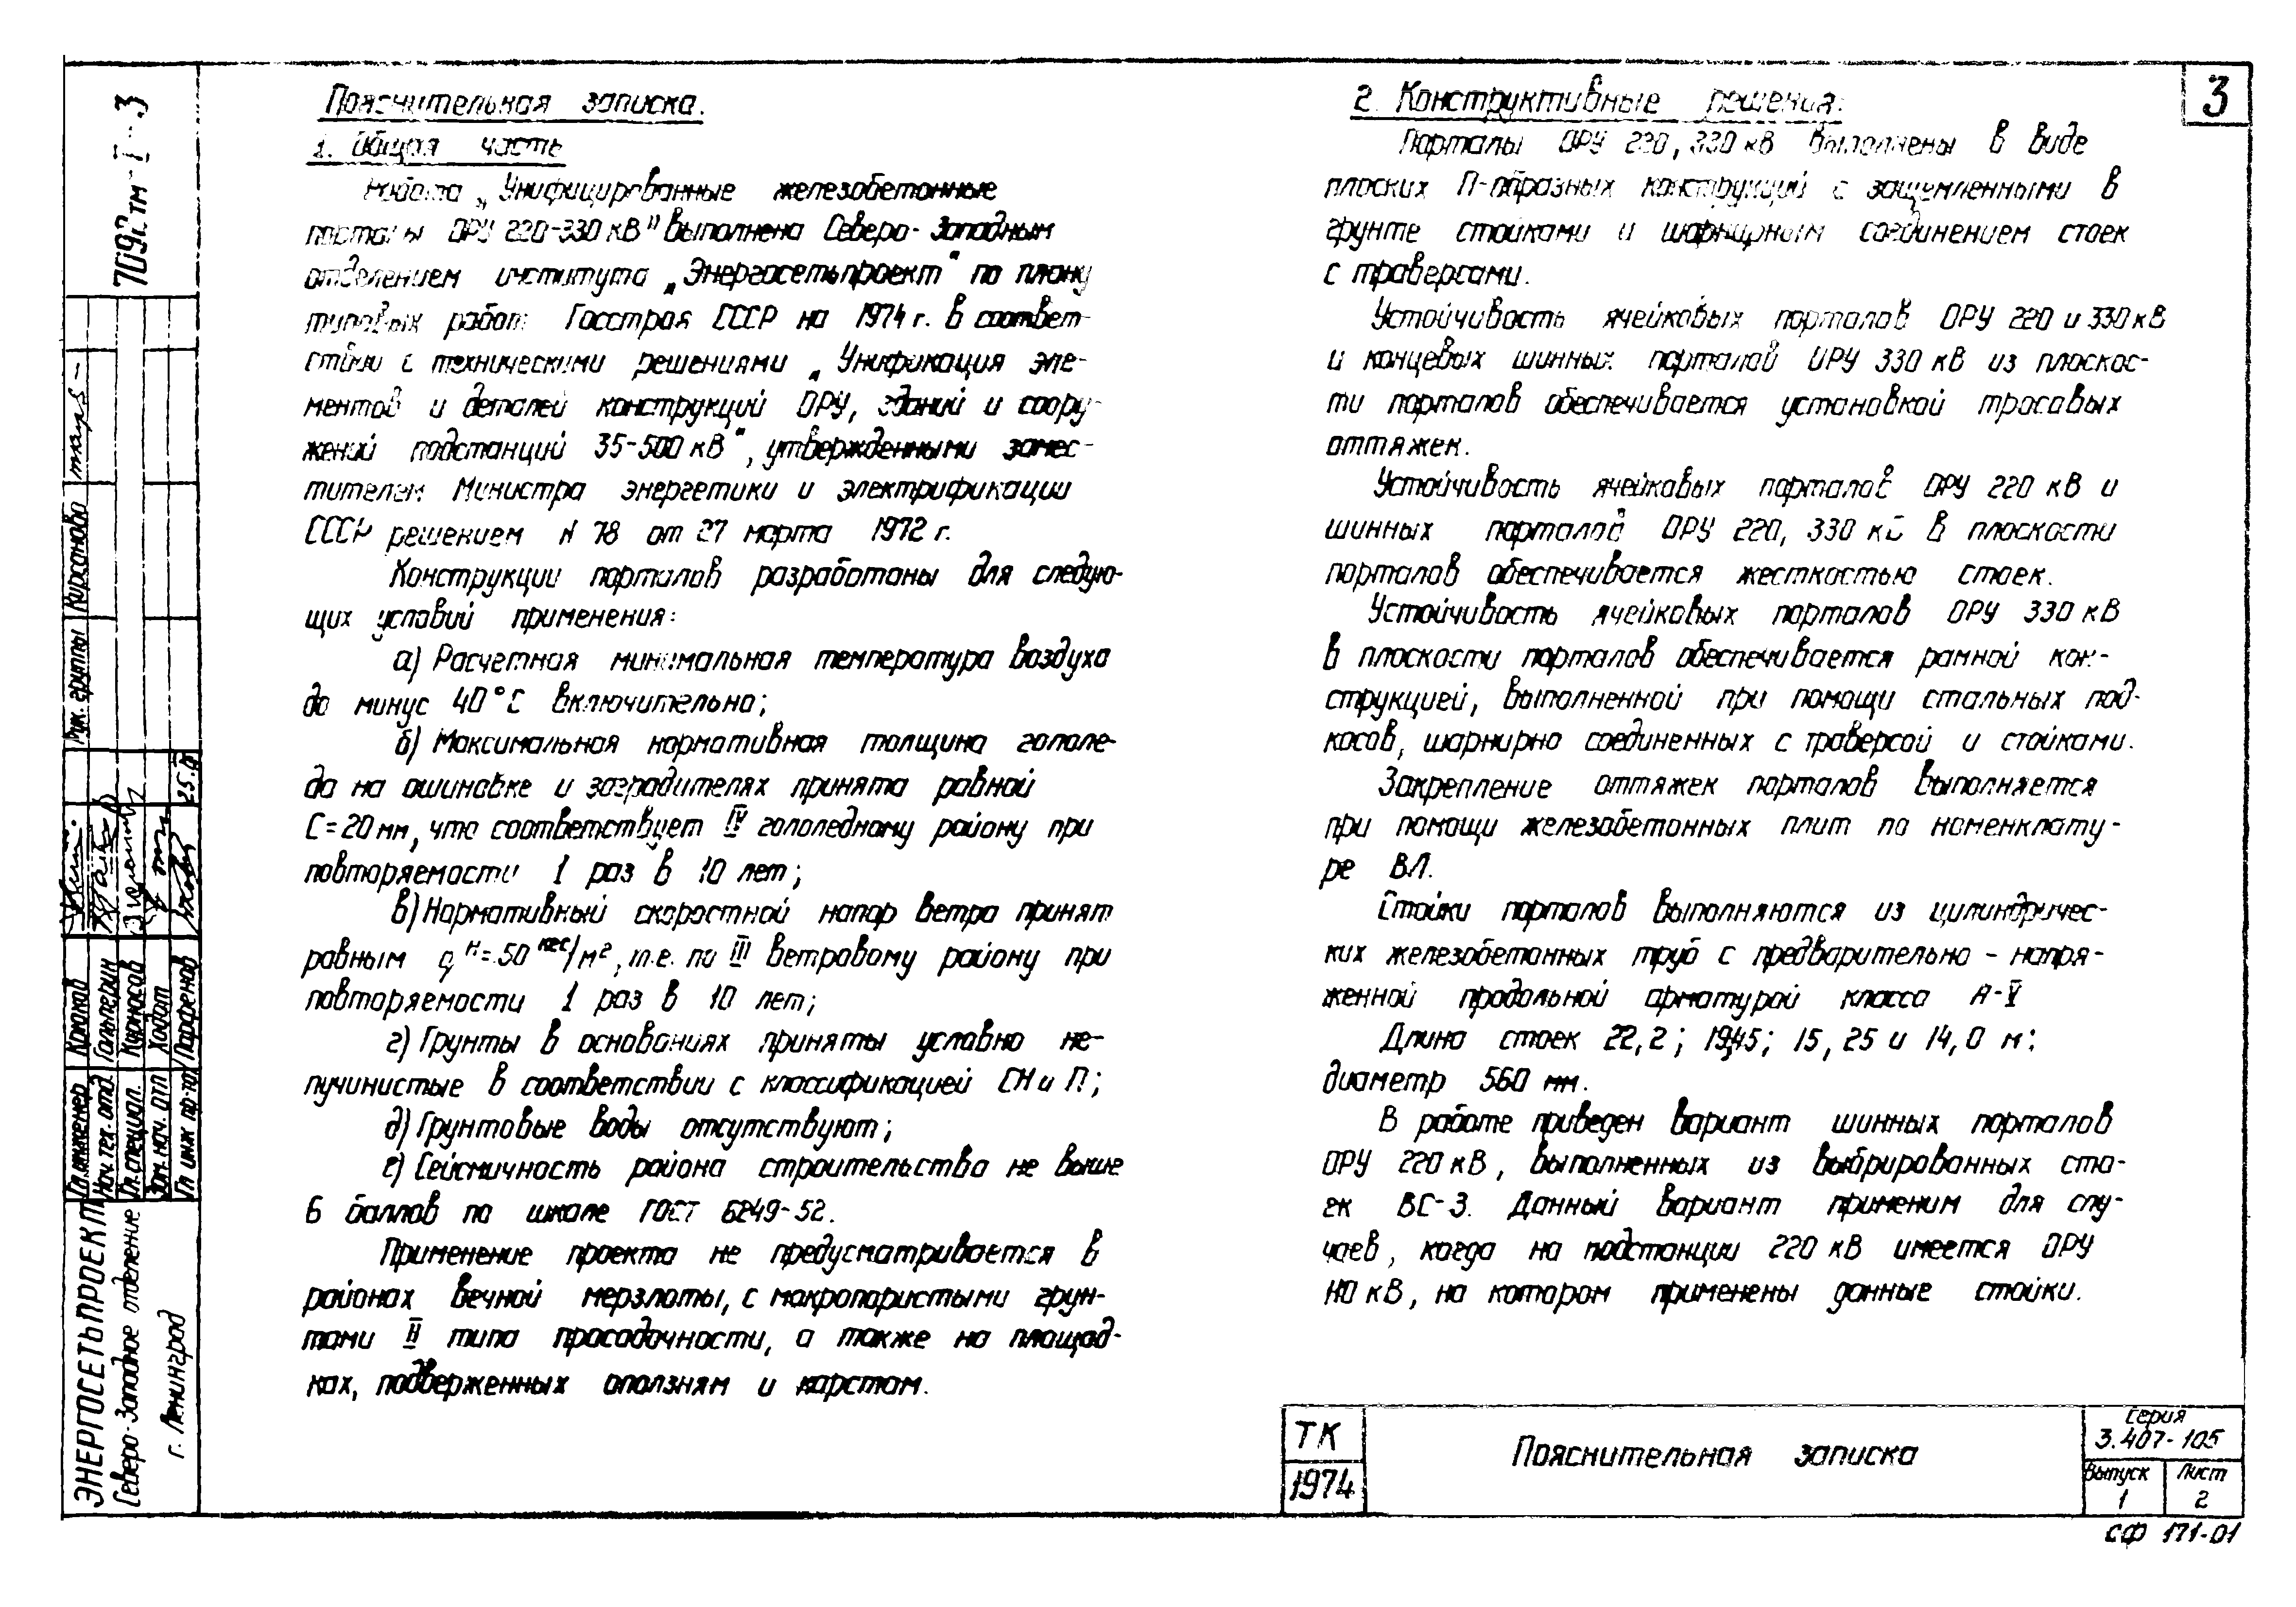 3
Пояснительная записка.
1. Общая часть
Работа „Унифицированные железобетонные
порталы ОРУ 220-330 кВ" выполнена Северо-Западным
отделением института „Энергосетьпроект" по плану
типовых работ Госстроя СССР на 1974 г. в соответ-
ствии с техническими решениями „Унификация эле-
ментов и деталей конструкций ОРУ, зданий и соору-
жений подстанций 35-500 кВ", утвержденными замес-
тителем Министра энергетики и электрификации
СССР решением N 78 от 27 марта 1972 г.
Конструкции порталов разработаны для следую-
щих условий применения:
а) Расчетная минимальная температура воздуха
до минус 40°С включительно;
б) Максимальная нормативная толщина гололе-
да на ошиновке и заградителях принята равной
С=20 мм, что соответствует IV гололедному району при
повторяемости 1 раз в 10 лет;
в) Нормативный скоростной напор ветра принят
равным qᴴ=50 кгс/м², т.е. по III ветровому району при
повторяемости 1 раз в 10 лет;
г) Грунты в основаниях приняты условно не-
пучинистые в соответствии с классификацией СНиП;
д) Грунтовые воды отсутствуют;
е) Сейсмичность района строительства не выше
6 баллов по шкале ГОСТ 6249-52.
Применение проекта не предусматривается в
районах вечной мерзлоты, с макропористыми грун-
тами II типа просадочности, а также на площад-
ках, подверженных оползням и карстам.
2. Конструктивные решения.
Порталы ОРУ 220, 330 кВ выполнены в виде
плоских П-образных конструкций с защемленными в
грунте стойками и шарнирным соединением стоек
с траверсами.
Устойчивость ячейковых порталов ОРУ 220 и 330 кВ
и концевых шинных порталов ОРУ 330 кВ из плоскос-
ти порталов обеспечивается установкой тросовых
оттяжек.
Устойчивость ячейковых порталов ОРУ 220 кВ и
шинных порталов ОРУ 220, 330 кВ в плоскости
порталов обеспечивается жесткостью стоек.
Устойчивость ячейковых порталов ОРУ 330 кВ
в плоскости порталов обеспечивается рамной кон-
струкцией, выполненной при помощи стальных под-
косов, шарнирно соединенных с траверсой и стойками.
Закрепление оттяжек порталов выполняется
при помощи железобетонных плит по номенклату-
ре ВЛ.
Стойки порталов выполняются из цилиндричес-
ких железобетонных труб с предварительно-напря-
женной продольной арматурой класса А-V
Длина стоек 22,2; 19,45; 15,25 и 14,0 м;
диаметр 560 мм.
В работе приведен вариант шинных порталов
ОРУ 220 кВ, выполненных из выбрированных сто-
ек ВС-3. Данный вариант применим для слу-
чаев, когда на подстанции 220 кВ имеется ОРУ
110 кВ, на котором применены данные стойки.
ТК
1974
Пояснительная записка
Серия
3.407-105
Выпуск
1
Лист
2
СФ 171-01
7092тм-I-3
Рук. группы Кирсанова
Гл. инженер Крюков
Нач. тех. отд. Гальперин
Гл. специал. Курносов
Зам. нач. ОТП Ходот
Гл инж пр-та Парфенов
ЭНЕРГОСЕТЬПРОЕКТ
Северо-Западное отделение
г. Ленинград